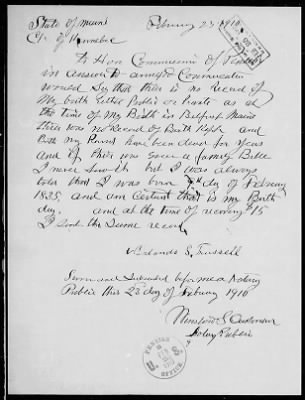 State of Maine February 23 1910
Co of Kennebec
To Hon Commissioner of Pensions
in answer to annexed Communication
would Say that there is no record of
My birth either Public or private as at
the time of My Birth in Belfast Maine
there was no Record of Birth Kept and
both My Parents have been dead for years
and if there was Ever a family Bible
I never Saw it but I was always
told that I was born day of February
1835, and am Certain that is my Birth
day. and at the time of receiving $15
I Sent the Same record
S. Trussell
Sworn and Subscribed before me a Notary
Public this 23 day of February 1910
S
Notary Public
PENSION
OFFICE
U. S.